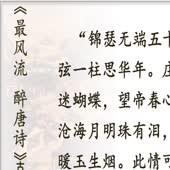 《最风流 醉唐诗》古
“锦瑟无端五十
弦一柱思华年。庄
迷蝴蝶，望帝春心
沧海月明珠有泪，
暖玉生烟。此情可